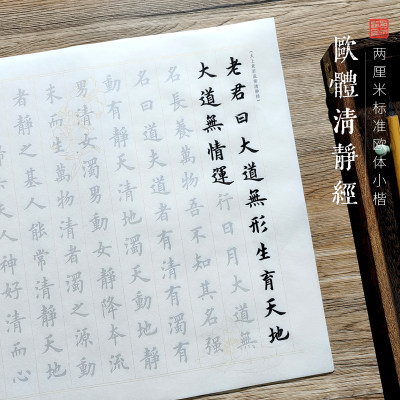 两厘米标准欧体小楷
歐體清靜經
老君曰大道無形生育天地
大道無情運行日月大道無
名長養萬物吾不知其名强
名曰道夫道者有清有濁有
動有靜天清地濁天動地靜
男清女濁男動女靜降本流
末而生萬物清者濁之源動
者靜之基人能常清靜天地
夫人神好清而心